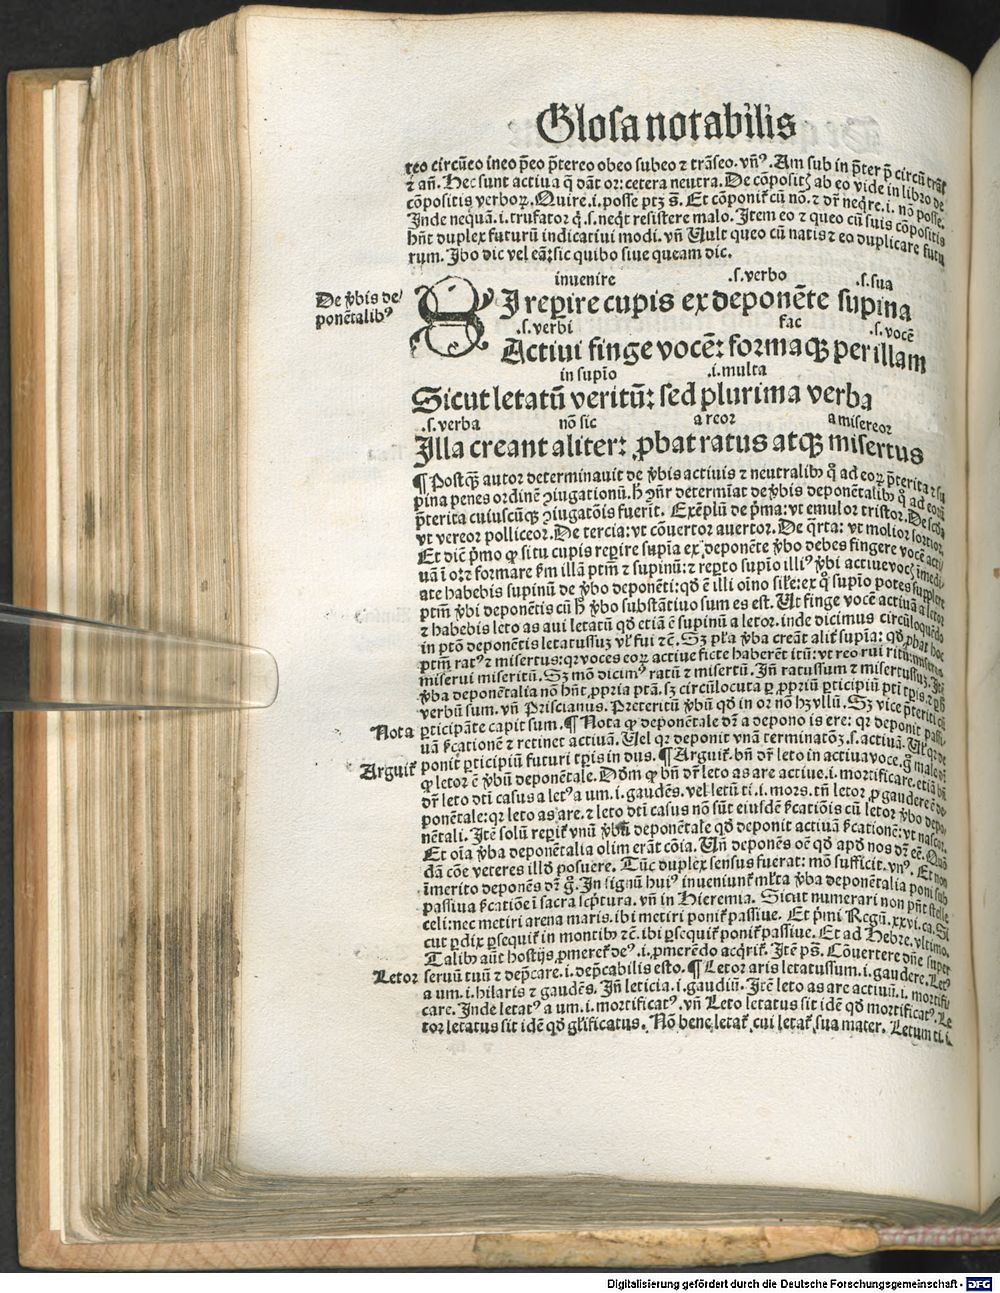 Glosa notabilis
reo circūeo ineo p̄eo p̄tereo obeo subeo ⁊ trāseo. vnꝰ. Am sub in p̄ter p̄ circū trās
⁊ añ. Hec sunt actiua q̄ dāt or: cetera neutra. De cōpositꝭ ab eo vide in libro de
cōpositis verboꝝ. Quire .i. posse ptꝫ s̄. Et cōponiť cū nō. ⁊ dr̄ neq̄re .i. nō posse.
Inde nequā .i. trufator q̇ .s. neq̇t resistere malo. Item eo ⁊ queo cū suis cōpositis
hn̄t duplex futurū indicatiui modi. vn̄ Uult queo cū natis ⁊ eo duplicare futu
rum. Ibo dic vel eā: sic quibo siue queam dic.
De v̄bis de/
ponētalibꝰ
inuenire .s. verbo .s. sua
SI reꝑire cupis ex deponēte supina
.s. verbi fac .s. vocē
Actiui finge vocē: formaqꝫ per illam
in supīo .i. multa
Sicut letatū veritū: sed plurima verba
.s. verba nō sic a reor a misereor
Illa creant aliter: ꝓbat ratus atqꝫ misertus
¶ Postqꝫ autor determinauit de v̄bis actiuis ⁊ neutralibꝰ q̄ ad eoꝝ p̄terita ⁊ su
pina penes ordinē ꝯiugationū. h̄ ꝯn̄r determīat de v̄bis deponētalibꝰ q̄ ad eoꝝ
p̄terita cuiuscūqꝫ ꝯiugatōis fuerit. Exēplū de p̄ma: vt emulor tristor. De scd̄a
vt vereor polliceor. De tercia: vt cōuertor auertor. De q̄rta: vt molior sortior.
Et dic̄ p̄mo ꝙ si tu cupis reꝑire supīa ex deponēte v̄bo debes fingere vocē acti
uā ī o: ⁊ formare ẜm illā ptm̄ ⁊ supinū: ⁊ reꝑto supīo illiꝰ v̄bi actiue vocꝭ īmedi
ate habebis supinū de v̄bo deponēti: qd̄ ē illi oīno sil̄e: ex q̄ supīo potes supplere
ptm̄ v̄bi deponētis cū h̄ v̄bo substātiuo sum es est. Ut finge vocē actiuā a letor
⁊ habebis leto as aui letatū qd̄ etiā ē supinū a letor. inde dicimus circūloquēdo
in ptō deponētis letatus suꝫ vl̓ fui ⁊c̄. Sꝫ pl̓a v̄ba creāt alit̓ supīa: qd̄ ꝓbat hoc
ptm̄ ratꝰ ⁊ misertus: qꝛ voces eoꝝ actiue ficte haberēt itū: vt reo rui ritū: misereo
miserui miseritū. Sꝫ mō dicimꝰ ratū ⁊ misertū. Iñ ratus sum ⁊ misertus suꝫ. Itē
v̄ba deponētalia nō hn̄t ꝓpria ptā. sꝫ circūlocuta ꝑ ꝓpriū ꝑticipiū ptī tꝑis. ⁊ ꝑ h̄
verbū sum. vn̄ Priscianus. Preteritū v̄bū qd̄ in or nō hꝫ vllū. Sꝫ vice p̄teriti cū
Nota
ꝑticipāte capit sum. ¶ Nota ꝙ deponētale dr̄ a depono is ere: qꝛ deponit passi
uā ẜcationē ⁊ retinet actiuā. Uel qꝛ deponit vnā terminatōꝫ .s. actiuā. Ul̓ qꝛ de
Arguiť
ponit ꝑticipiū futuri tꝑis in dus. ¶ Arguiť. bn̄ dr̄ leto in actiua voce. g̊ male dr̄
ꝙ letor ē v̄bū deponētale. Dōm ꝙ bn̄ dr̄ leto as are actiue .i. mortificare. etiā bn̄
dr̄ leto dti casus a letꝰ a um .i. gaudēs. vel letū ti .i. mors. tn̄ letor ꝓ gaudere ē de
ponētale: qꝛ leto as are. ⁊ leto dti casus nō sūt eiusdē ẜcatiōis cū letor v̄bo depo
nētali. Itē solū reꝑiť vnū v̄bū deponētale qd̄ deponit actiuā ẜcationē: vt nascor.
Et oīa v̄ba deponētalia olim erāt cōia. Un̄ deponēs oē qd̄ apd̄ nos dr̄ eē. Quō
dā cōe veteres illd̄ posuere. Tūc duplex sensus fuerat: mō sufficit. vnꝰ. Et non
īmerito deponēs dr̄ g̊. In signū huiꝰ inueniunť ml̓ta v̄ba deponētalia poni sub
passiua ẜcatiōe ī sacra sc̄ptura. vn̄ in Hieremia. Sicut numerari non pn̄t stelle
celi: nec metiri arena maris. ibi metiri poniť passiue. Et p̄mi Regū .xxvi. ca. Si
cut ꝑdix ꝑsequiť in montibꝰ ⁊c̄. ibi ꝑsequiť poniť passiue. Et ad Hebre. vltimo.
Talibꝰ aūt hostijs ꝓmereť deꝰ .i. ꝓmerēdo acq̇riť. Itē ps̄. Cōuertere dn̄e super
Letor
seruū tuū ⁊ dep̄care .i. dep̄cabilis esto. ¶ Letor aris letatus sum .i. gaudere. Letꝰ
a um .i. hilaris ⁊ gaudēs. Iñ leticia .i. gaudiū. Itē leto as are actiuū .i. mortifi
care. Inde letatꝰ a um .i. mortificatꝰ. vn̄ Leto letatus sit idē qd̄ mortificatꝰ. Le
tor letatus sit idē qd̄ gl̓ificatus. Nō bene letať, cui letať sua mater. Letum ti .i.
Digitalisierung gefördert durch die Deutsche Forschungsgemeinschaft - DFG